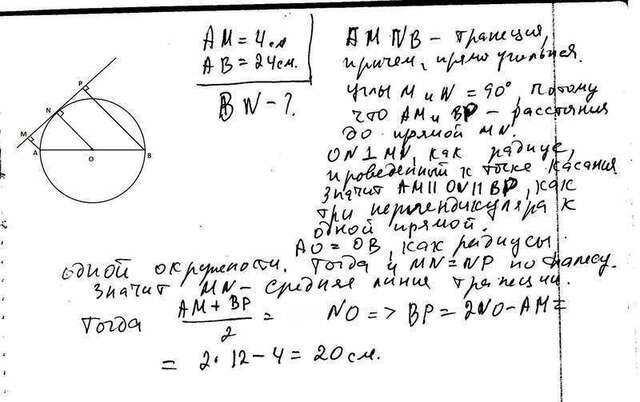 P
N
M
A
O
B
AM = 4 см
AB = 24 см.
BN - ?
AMNB - трапеция,
причем, прямоугольная.
Углы M и N = 90°, потому
что AM и BP - расстояния
до прямой MN.
ON⊥MN, как радиус,
проведенный к точке касания
Значит AM || ON || BP, как
три перпендикуляра к
одной прямой.
AO = OB, как радиусы
одной окружности. Тогда и MN = NP по Фалесу.
Значит MN - средняя линия трапеции.
Тогда (AM + BP)/2 = NO => BP = 2NO - AM =
= 2 · 12 - 4 = 20 см.